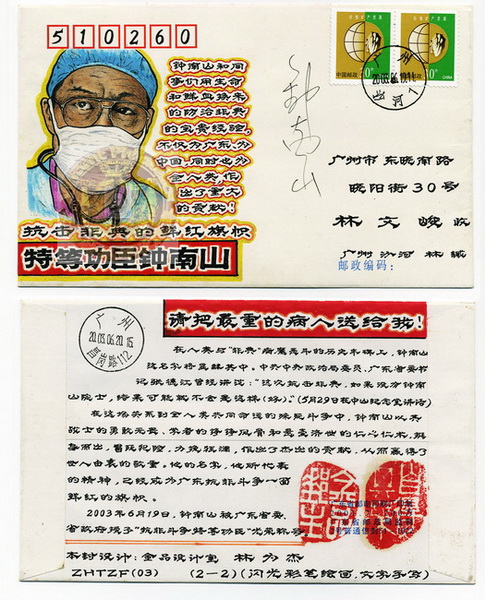 510260
钟南山和同
事们用生命
和鲜血换来
的防治非典
的宝贵经验，
不仅为广东、为
中国，同时也为
全人类作
出了重大
的贡献！
抗击非典的鲜红旗帜
特等功臣钟南山
钟南山
中国邮政
10分
CHINA
广州市 东晓南路
晓阳街30号
林文峻 收
广州 沙河 林缄
邮政编码：
广州
2003.06.20.15
昌岗路112
请把最重的病人送给我！
在人类与"非典"病魔恶斗的历史丰碑上，钟南山
这名字将显赫其中。中共中央政治局委员、广东省委书
记张德江曾经讲过："这次抗击非典，如果没有钟南
山院士，结果可能就不会是这样(好)。"(5月29日在中山纪念堂讲话)
在这场关系到全人类共同命运的殊死斗争中，钟南山以其
战士的勇敢无畏、学者的铮铮风骨和悬壶济世的仁心仁术，挺
身而出，冒死犯险，力挽狂澜，作出了杰出的贡献，从而赢得了
世人由衷的敬重。他的名字，他所代表
的精神，已经成为广东抗击非典斗争一面
鲜红的旗帜。
2003年6月19日，钟南山被广东省委、
省政府授予"抗击非典斗争特等功臣"光荣称号。
本封设计：金品设计室 林为杰
ZHTZF(03) (2-2)(闪光彩笔绘画，文字手写)